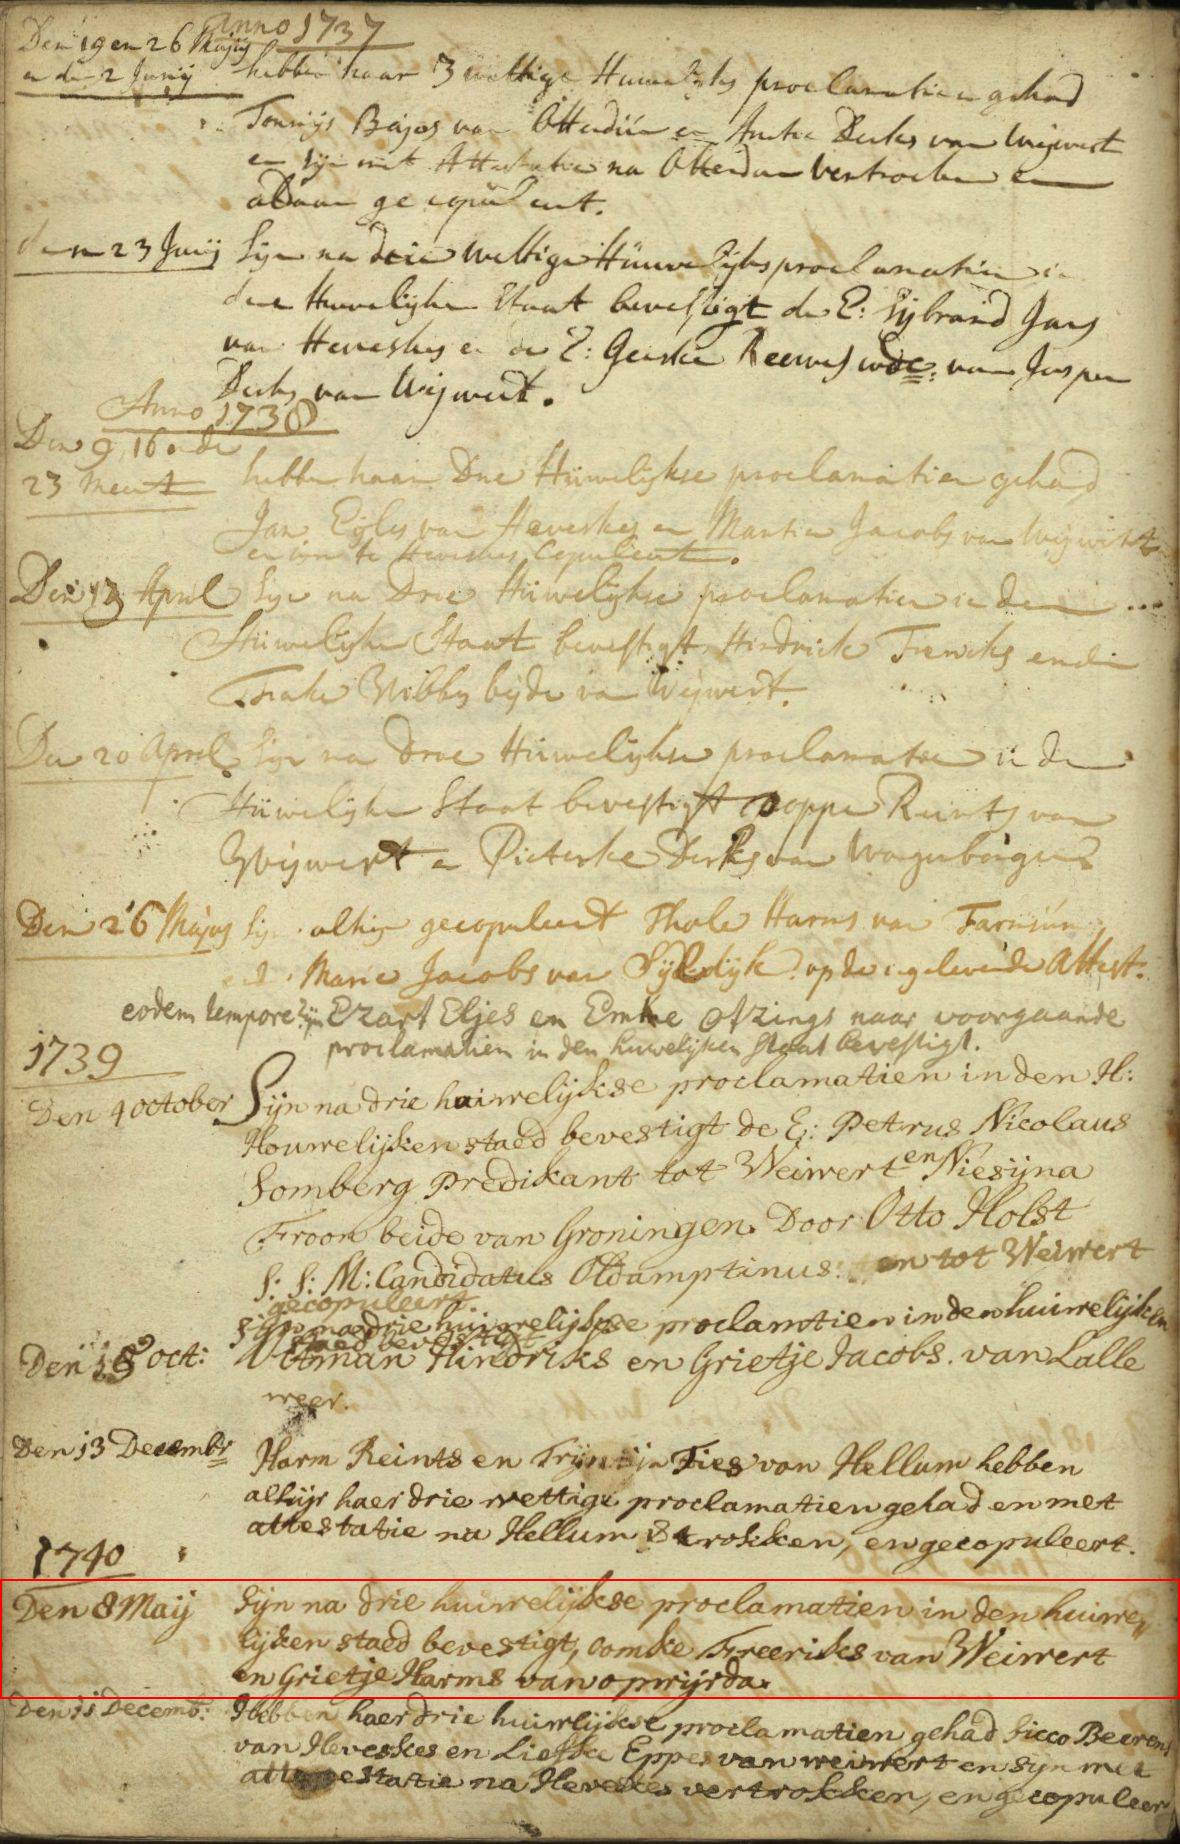 Anno 1737
Den 19 en 26 Majus
en den 2 Junij hebben haar 3 wettige Huwelijks proclamatien gehad
Tonnijs Bajos van Otterdum en Antie Derks van Wijwert
en sijn met Attestatie na Otterdum vertrocken en
aldaar gecopuleert.
den 23 Junij Sijn na drie wettige Huwelijks proclamatien in
den Huwelijken Staat bevestigt de E: Sijbrand Jans
van Heveskes en de E: Geeske Reewes wdc: van Jasper
Derks van Wijwert.
Anno 1738
Den 9 16 en de
23 Meert hebben haar Drie Huwelijkse proclamatien gehad
Jan Eijles van Heveskes en Martie Jacobs van Wijwert
en sijn te Heveskes Copuleert.
Den 13 April Sijn na Drie Huwelijkse proclamatien in den
Huwelijken Staat bevestigt Hindrick Frericks en de
Frake Wibbes bijde van Wijwert.
Den 20 April Sijn na drie Huwelijkse proclamatie in de
Huwelijken Staat bevestigt Poppe Reints van
Wijwert en Pieterke Derks van Wagenborgen
Den 26 Majus Sijn alhier gecopuleert Thole Harms van Farmsum
en Marie Jacobs van Sijldijk op de ingeleverde Attest.
eodem tempore zijn Ezart Eljes en Emke Otzings naar voorgaande
proclamatien in den huwelijken staat bevestigt.
1739
Den 4 october Sijn na drie huiwelijkse proclamatien in den H:
Houwelijken staed bevestigt de E: Petrus Nicolaus
Somberg Predikant tot Weiwert en Niesijna
Froon beide van Groningen. Door Otto Holst
S: S: M: Candidatus Oldamptinus. en tot Weiwert
gecopuleert.
Sijn na drie huiwelijkse proclamtien in den huiwelijken
staed bevestigt
Den 18 oct: Hindriks en Grietje Jacobs. van Lalle
weer.
Den 13 Decembr Harm Reints en Trijntijn Fies van Hellum hebben
alhijr haer drie wettige proclamatien gehad en met
attestatie na Hellum vertrokken, en gecopuleert.
1740
Den 8 Maij Sijn na drie huiwelijkse proclamatien in den huiwe,
lijken staed bevestigt, Oomke Freeriks van Weiwert
en Grietje Harms van opwijrda.
Den 11 Decemb: Hebben haer drie huiwlijkse proclamatien gehad Sicco Beerens
van Heveskes en Liefke Eppes van weiwert en sijn met
attestatie na Heveskes vertrokken, en gecopuleer